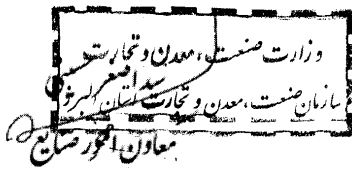 وزارت صنعت، معدن و تجارت
سید اصغر
سازمان صنعت، معدن و تجارت استان البرز
معاون امور صنایع